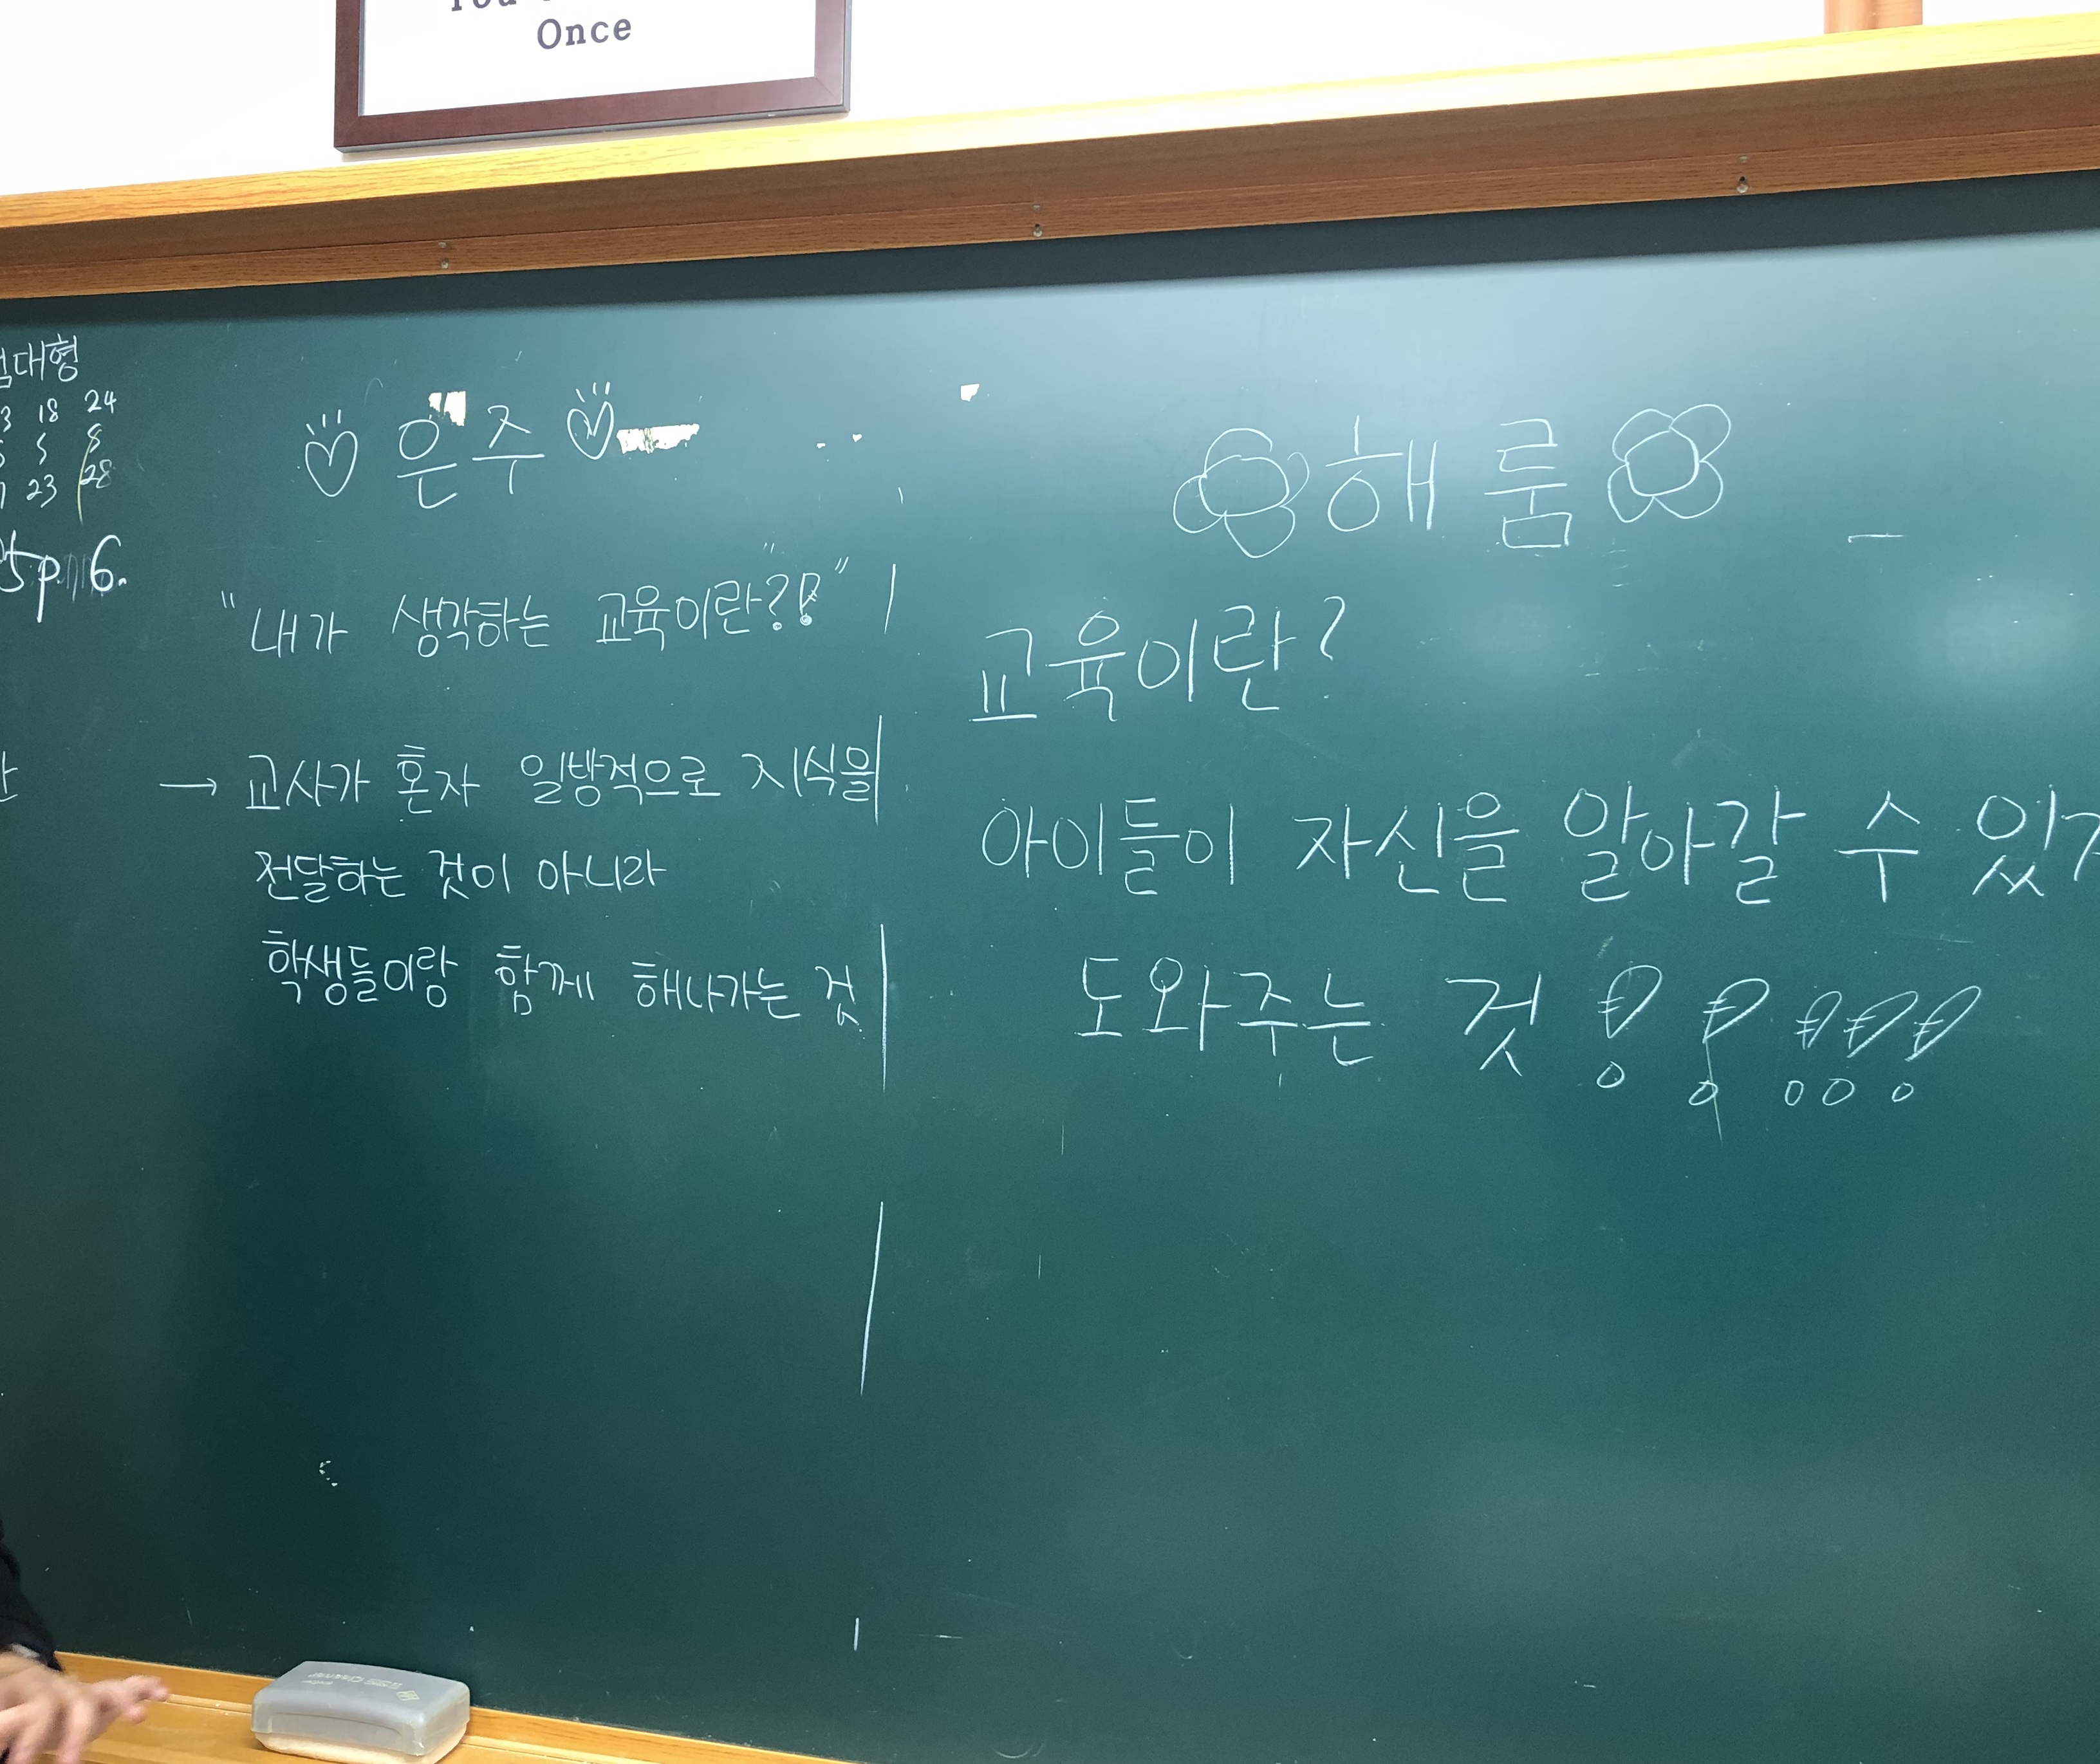 Once
대형
18 24
5 8
23 28
5p. 6.
은주
"내가 생각하는 교육이란?!"
→ 교사가 혼자 일방적으로 지식을
전달하는 것이 아니라
학생들이랑 함께 해나가는 것
해룸
교육이란?
아이들이 자신을 알아갈 수 있
도와주는 것!!!!!